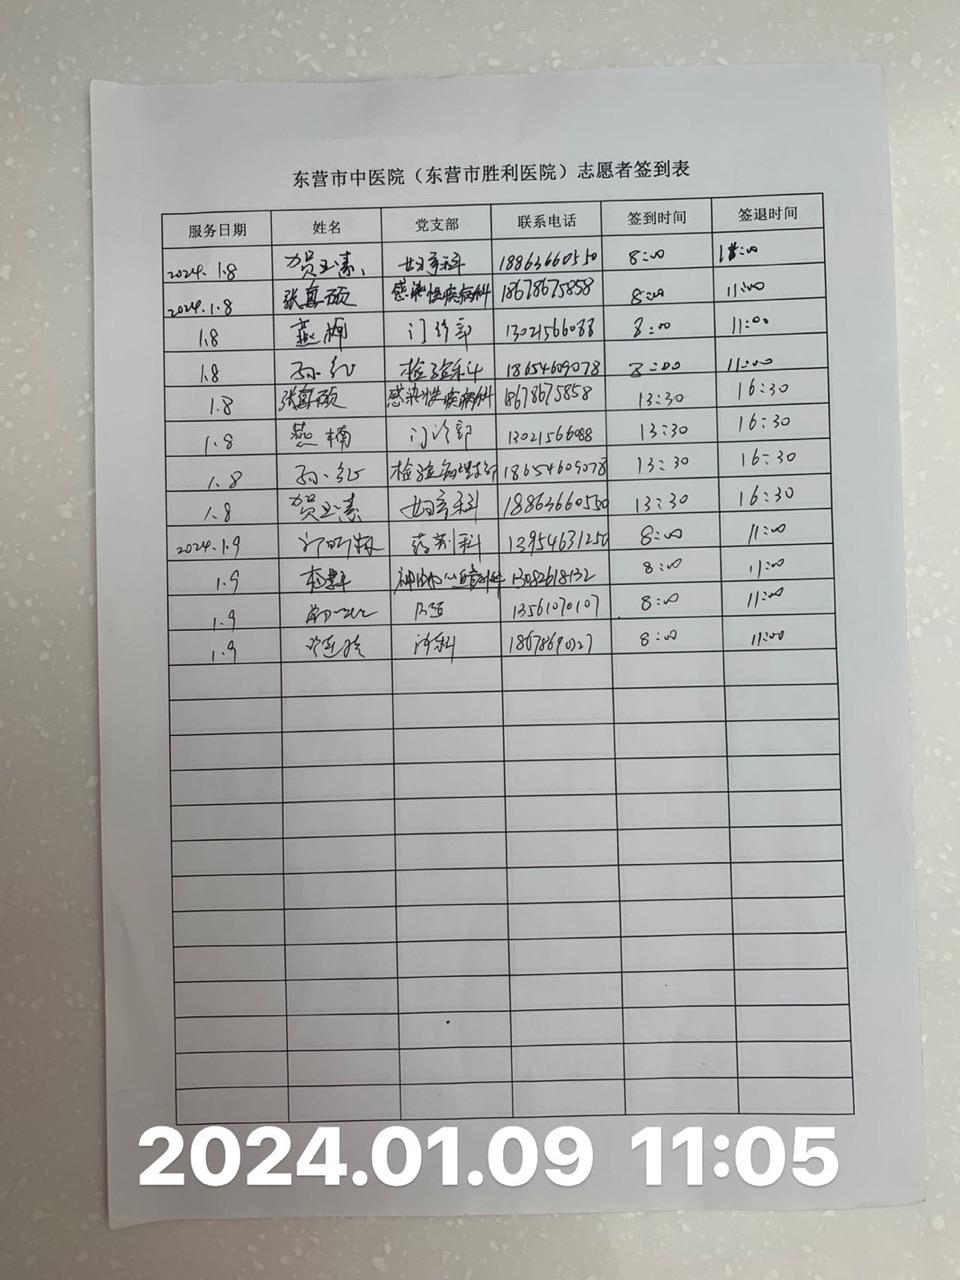 东营市中医院（东营市胜利医院）志愿者签到表
服务日期 姓名 党支部 联系电话 签到时间 签退时间
2024.1.8 贺玉素 妇产科 18863660550 8:00 11:00
2024.1.8 张真硕 感染性疾病科 18678675858 8:00 11:00
1.8 燕楠 门诊部 13021566088 8:00 11:00
1.8 孙红 检验科 18654609078 8:00 11:00
1.8 张真硕 感染性疾病科 18678675858 13:30 16:30
1.8 燕楠 门诊部 13021566088 13:30 16:30
1.8 孙红 检验 18654609078 13:30 16:30
1.8 贺玉素 妇产科 18863660550 13:30 16:30
2024.1.9 药剂科 13954631250 8:00 11:00
1.9 13082618132 8:00 11:00
1.9 13561070107 8:00 11:00
1.9 8:00 11:00
2024.01.09 11:05